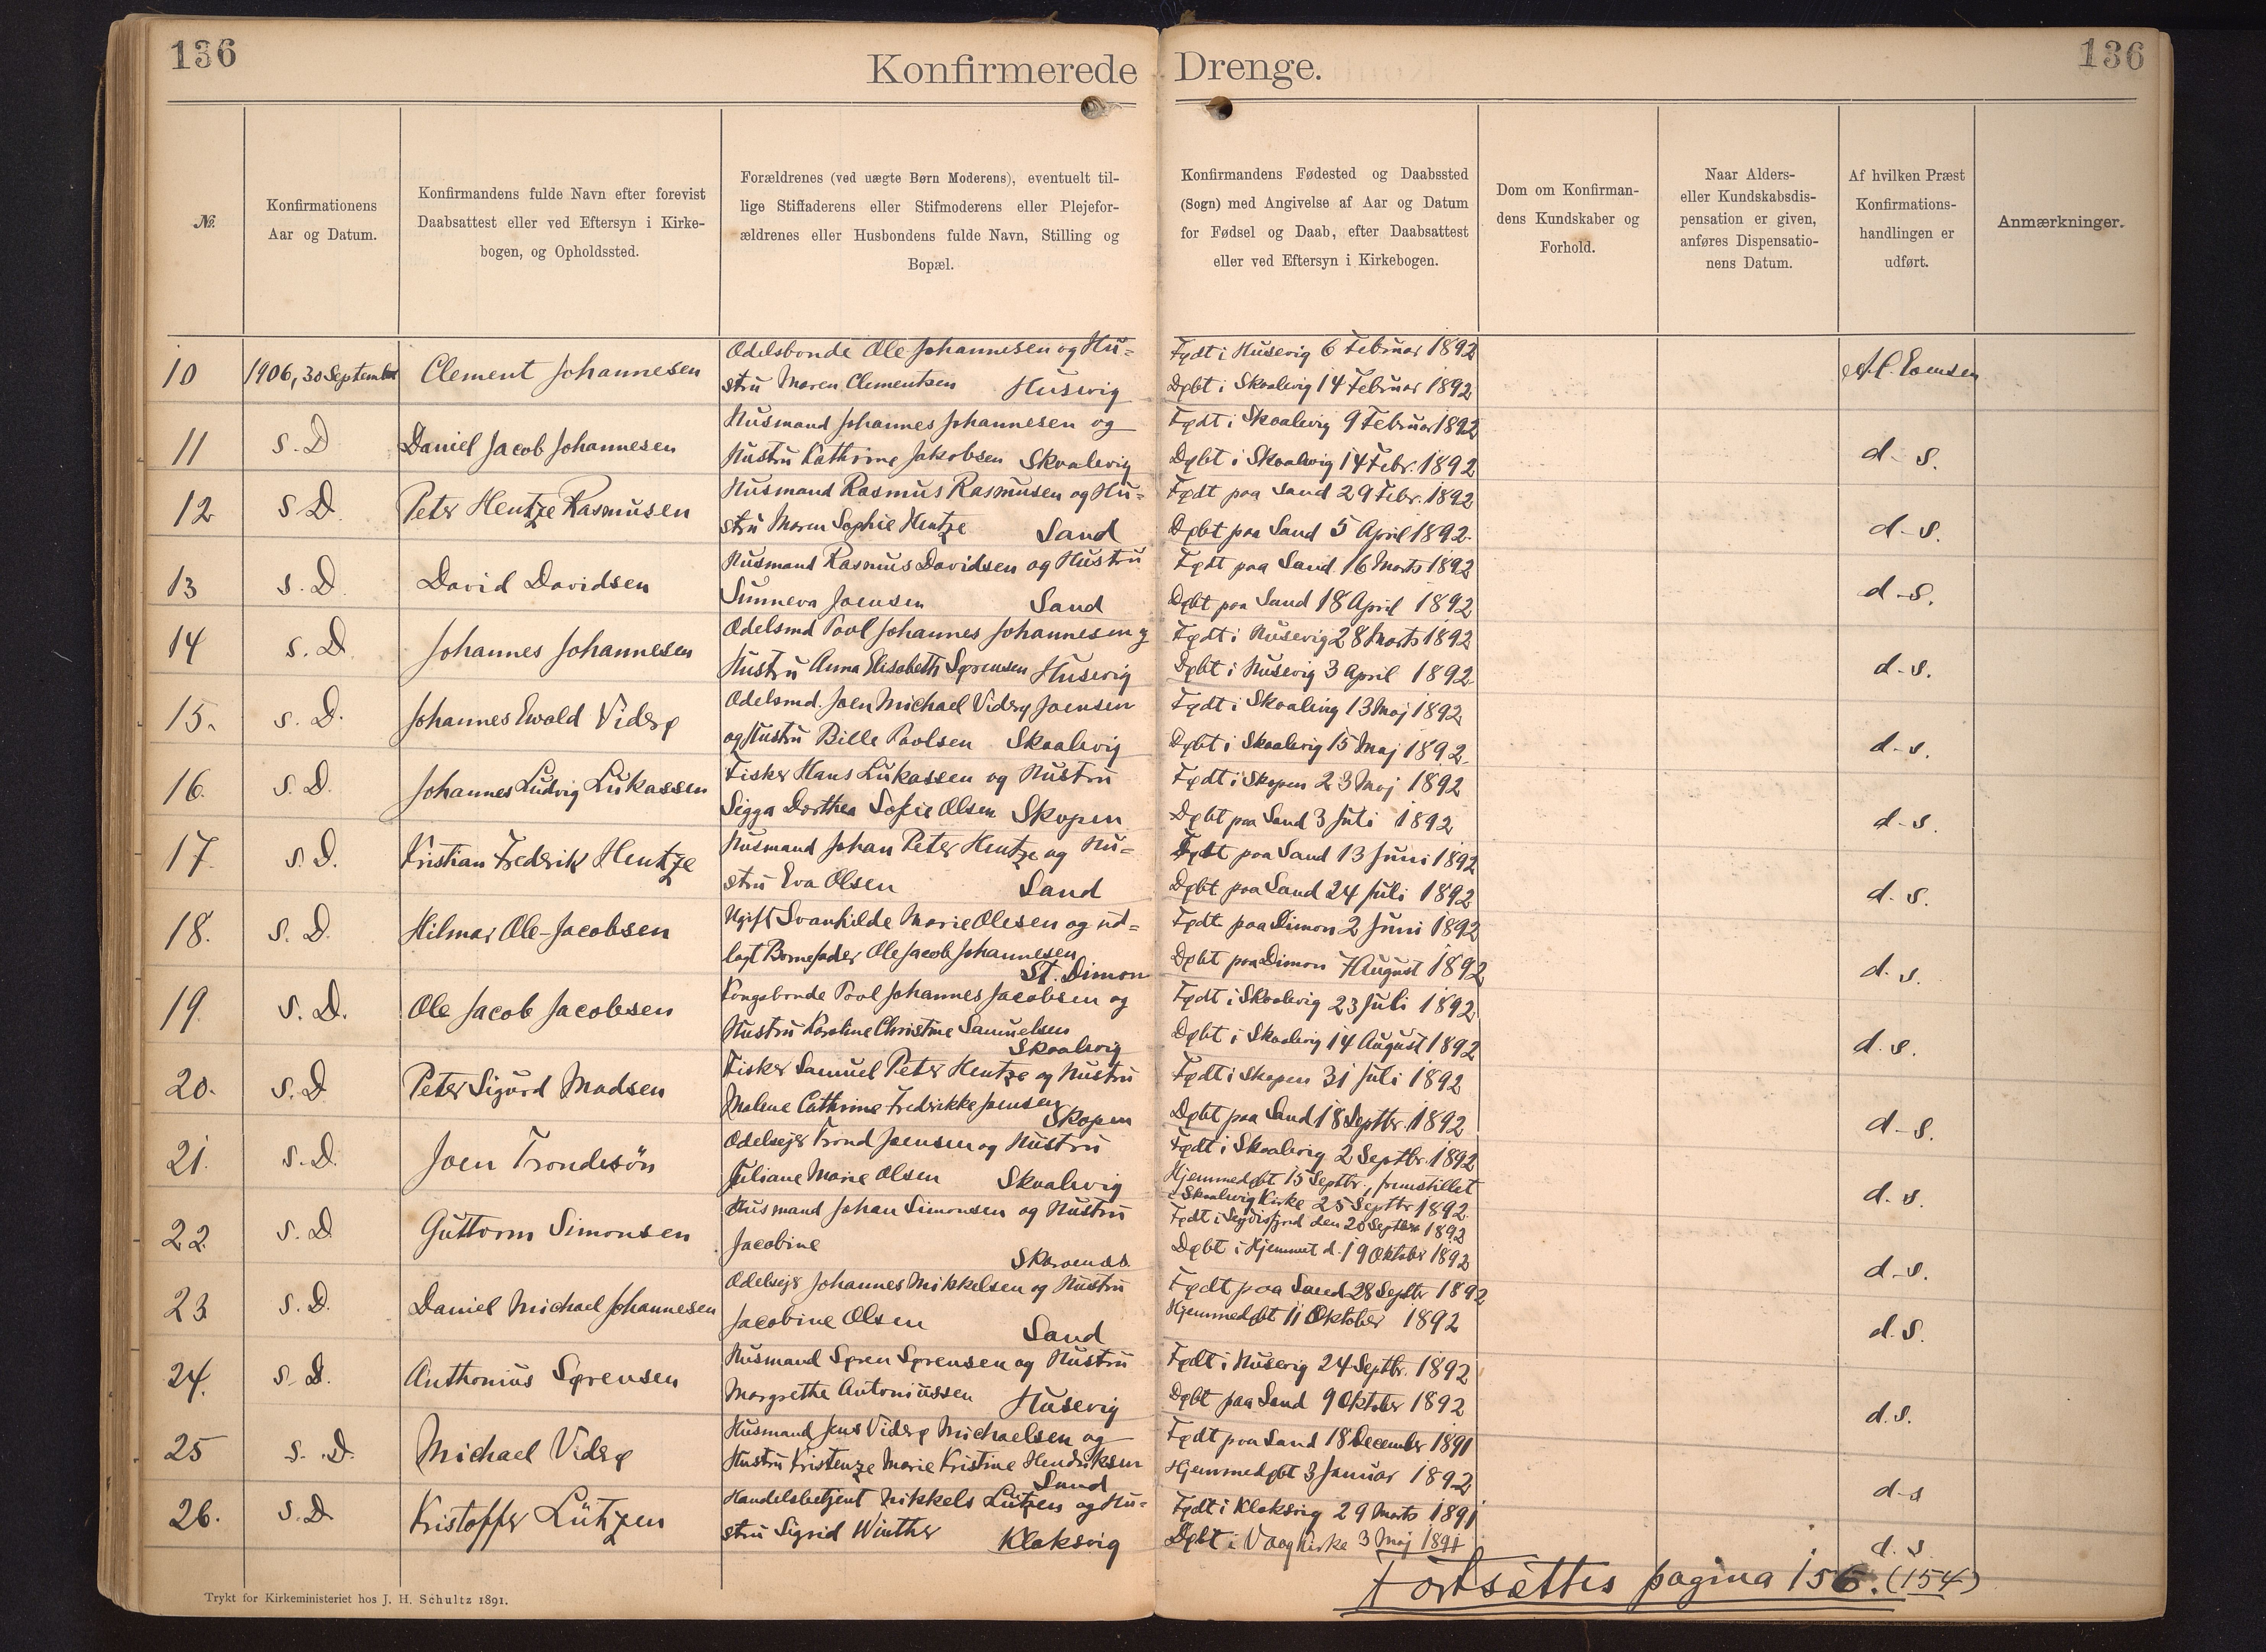 136
Konfirmerede Drenge.
136
№
Konfirmationens
Aar og Datum.
Konfirmandens fulde Navn efter forevist
Daabsattest eller ved Eftersyn i Kirke-
bogen, og Opholdssted.
Forældrenes (ved uægte Børn Moderens), eventuelt til-
lige Stiffaderens eller Stifmoderens eller Plejefor-
ældrenes eller Husbondens fulde Navn, Stilling og
Bopæl.
Konfirmandens Fødested og Daabssted
(Sogn) med Angivelse af Aar og Datum
for Fødsel og Daab, efter Daabsattest
eller ved Eftersyn i Kirkebogen.
Dom om Konfirman-
dens Kundskaber og
Forhold.
Naar Alders-
eller Kundskabsdis-
pensation er given,
anføres Dispensatio-
nens Datum.
Af hvilken Præst
Konfirmations-
handlingen er
udført.
Anmærkninger.
10 1906, 30 September Clement Johannesen
Odelsbonde Ole Johannesen og Hu=
stru Maren Clementsen Husevig
Født i Husevig 6 Februar 1892
Døbt i Skaalevig 14 Februar 1892
11 s. D Daniel Jacob Johannesen
Husmand Johannes Johannesen og
Hustru Kathrine Jakobsen Skaalevig
Født i Skaalevig 9 Februar 1892
Døbt i Skaalevig 14 Febr. 1892
d- s.
12 s D. Peter Hentze Rasmusen
Husmand Rasmus Rasmusen og Hu=
stru Maren Sophie Hentze Sand
Født paa Sand 29 Febr. 1892
Døbt paa Sand 5 April 1892.
d- s.
13 s. D. David Davidsen
Husmand Rasmus Davidsen og Hustru
Sunneva Joensen Sand
Født paa Sand 16 Marts 1892
Døbt paa Sand 18 April 1892
d-s.
14 s. D. Johannes Johannesen
Odelsmd Poul Johannes Johannesen og
Hustru Anna Elisabeth Sørensen Husevig
Født i Husevig 28 Marts 1892
Døbt i Husevig 3 April 1892
d-s.
15. s. D. Johannes Ewald Viderø
Odelsmd. Joen Michael Viderø Joensen
og Hustru Bille Poulsen Skaalevig
Født i Skaalevig 13 Maj 1892
Døbt i Skaalevig 15 Maj 1892.
d-s.
16. s. D. Johannes Ludvig Lukassen
Fisker Hans Lukassen og Hustru
Sigga Dorthea Sofie Olsen Skopen
Født i Skopen 23 Maj 1892
Døbt paa Sand 3 Juli 1892
d-s.
17. s. D. Kristian Frederik Hentze
Husmand Johan Peter Hentze og Hu=
stru Eva Olsen Sand
Født paa Sand 13 Juni 1892
Døbt paa Sand 24 Juli 1892
d. s.
18. s. D. Hilmar Ole-Jacobsen
Ugift Svanhilde Marie Olesen og ud=
lagt Barnefader Ole Jacob Johannesen
St. Dimon
Født paa Dimon 2 Juni 1892
Døbt paa Dimon 7 August 1892
d. s.
19. s. D. Ole Jacob Jacobsen
Kongsbonde Poul Johannes Jacobsen og
Hustru Karoline Christine Samuelsen
Skaalevig
Født i Skaalevig 23 Juli 1892
Døbt i Skaalevig 14 August 1892
d. s.
20. s. D Peter Sigurd Madsen
Fisker Samuel Peter Hentze og Hustru
Malene Cathrine Fredrikke Joensen
Skopen
Født i Skopen 31 Juli 1892
Døbt paa Sand 18 Septbr. 1892
d-s.
21. s. D. Joen Trondesön
Odelsejer Trond Joensen og Hustru
Juliane Marie Olsen Skaalevig
Født i Skaalevig 2 Septbr. 1892
Hjemmedøbt 15 Septbr., fremstillet
i Skaalevig Kirke 25 Septbr 1892.
d. s.
22. s. D Guttorm Simonsen
Husmand Johan Simonsen og Hustru
Jacobine
Født i Seydisfjord den 20 Septbr 1892
Døbt i Hjemmet d. 19 Oktober 1892
d-s.
23 s. D. Daniel Michael Johannesen
Odelsejer Johannes Mikkelsen og Hustru
Jacobine Olsen Sand
Født paa Sand 28 Septbr 1892
Hjemmedøbt 11 Oktober 1892
d. s.
24. s. D. Anthonius Sørensen
Husmand Søren Sørensen og Hustru
Margrethe Antoniussen Husevig
Født i Husevig 24 Septbr. 1892
Døbt paa Sand 9 Oktober 1892
d. s.
25 s. D. Michael Viderø
Husmand Jens Viderø Michaelsen og
Hustru Kristenze Marie Kristine Hendriksen
Sand
Født paa Sand 18 December 1891
Hjemmedøbt 3 Januar 1892
d-s
26. s. D. Kristoffer Lützen
Handelsbetjent Mikkels Lützen og Hu=
stru Sigrid Winther Klaksvig
Født i Klaksvig 29 Marts 1891
Døbt i Vaag Kirke 3 Maj 1891
d. s
Fortsættes pagina 156. (154)
Trykt for Kirkeministeriet hos J. H. Schultz 1891.